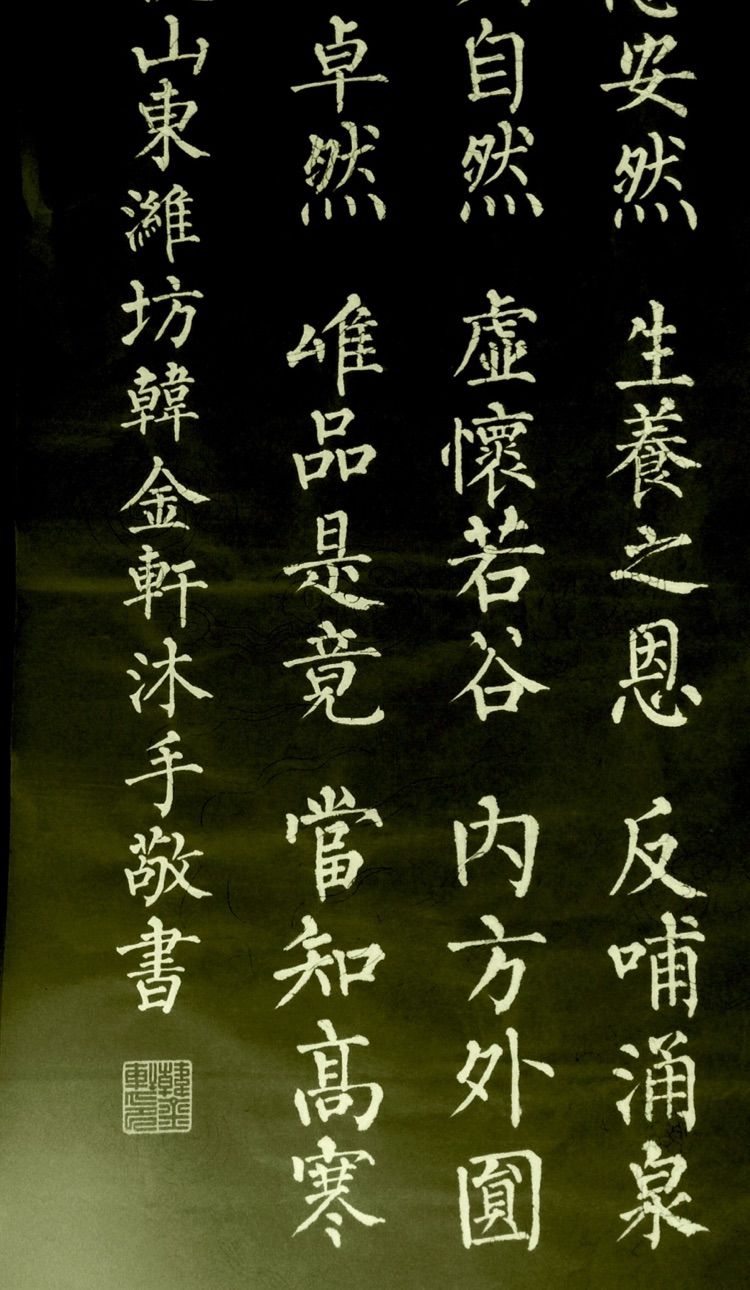 安然 生養之恩 反哺涌泉
自然 虛懷若谷 内方外圓
卓然 唯品是竟 當知髙寒
山東濰坊韓金軒沐手敬書